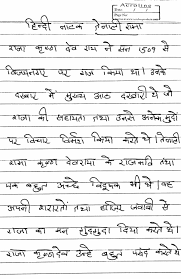 हिन्दी नाटक तेनाली रामा
राजा कृष्ण देव राय ने सन 1509 से
विजयनगर पर राज किया था। उनके
दरबार में मुख्य आठ दरबारी थे जो
राजा की सहायता तथा उनसे अनेक मुद्दों
पर विचार विमर्श किया करते थे तेनाली
रामा कृष्ण देवराय के राजकवि तथा
एक बहुत अच्छे विदूषक भी थे वह
अपनी शरारतों तथा हाजिर जवाबी से
राजा का मन गुदगुदा दिया करते थे।
राजा कृष्णदेव उन्हें बहुत पसंद करते थे